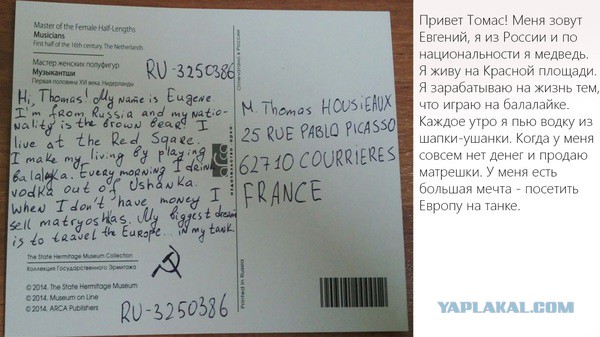 Master of the Female Half-Lengths
Musicians
First half of the 16th century, The Netherlands
Мастер женских полуфигур
Музыкантши
Первая половина XVI века, Нидерланды
RU-3250386
Hi, Thomas! My name is Eugene.
I'm from Russia and my natio-
nality is the brown bear! I
live at the Red Sqare.
I make my living by playing
balalayka. Every morning I drink
vodka out of Ushanka.
When I don't have money I
sell matryoshkas. My biggest dream
is to travel the Europe... in my tank.
The State Hermitage Museum Collection
Коллекция Государственного Эрмитажа
© 2014. The State Hermitage Museum
© 2014. Museum on Line
© 2014. ARCA Publishers
RU-3250386
Отпечатано в России
arca
Printed in Russia
M. Thomas HOUSIEAUX
25 RUE PABLO PICASSO
62710 COURRIERES
FRANCE
Привет Томас! Меня зовут
Евгений, я из России и по
национальности я медведь.
Я живу на Красной площади.
Я зарабатываю на жизнь тем,
что играю на балалайке.
Каждое утро я пью водку из
шапки-ушанки. Когда у меня
совсем нет денег и продаю
матрешки. У меня есть
большая мечта - посетить
Европу на танке.
YAPLAKAL.COM